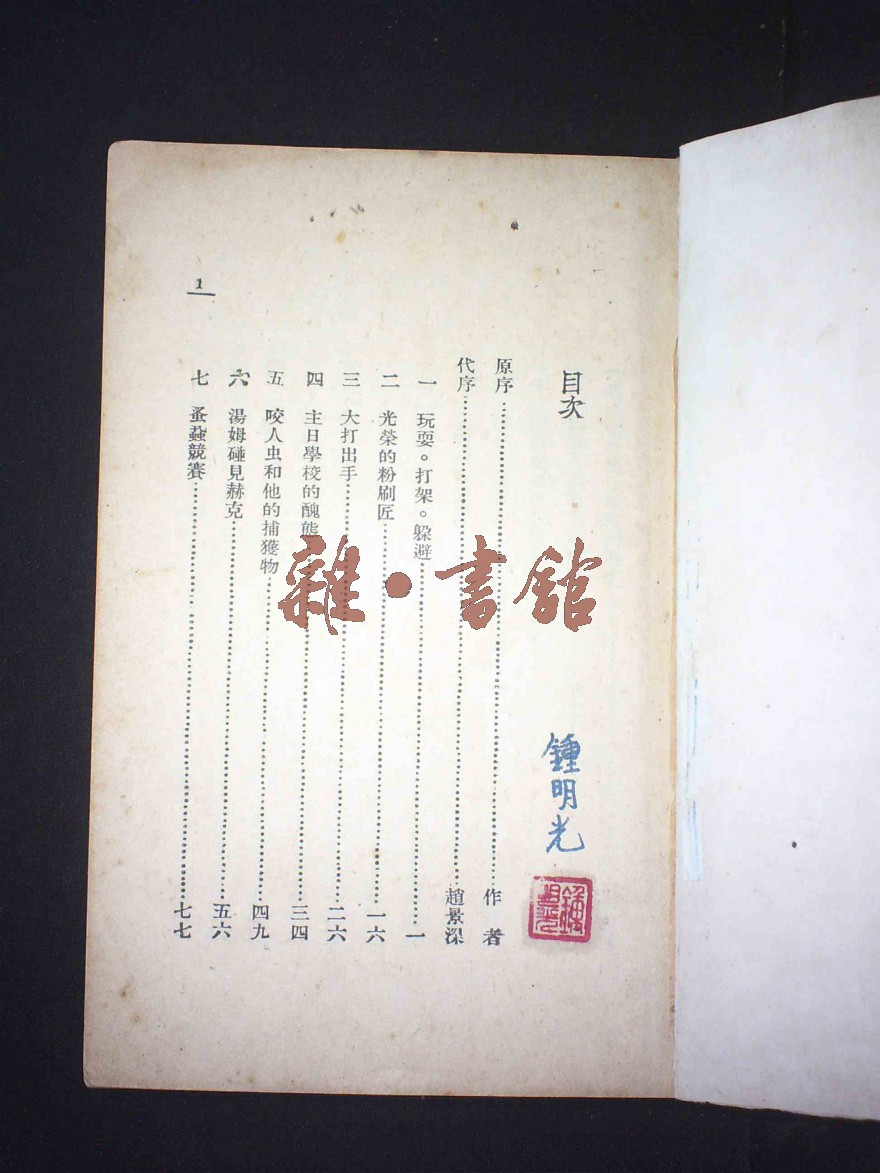 目次
鍾明光
原序……作者
代序……趙景深
一 玩耍。打架。躲避……一
二 光榮的粉刷匠……一六
三 大打出手……二六
四 主日學校的醜態……三四
五 咬人虫和他的捕獲物……四九
六 湯姆碰見赫克……五六
七 蚤蝨競賽……七七
1
雜·書館